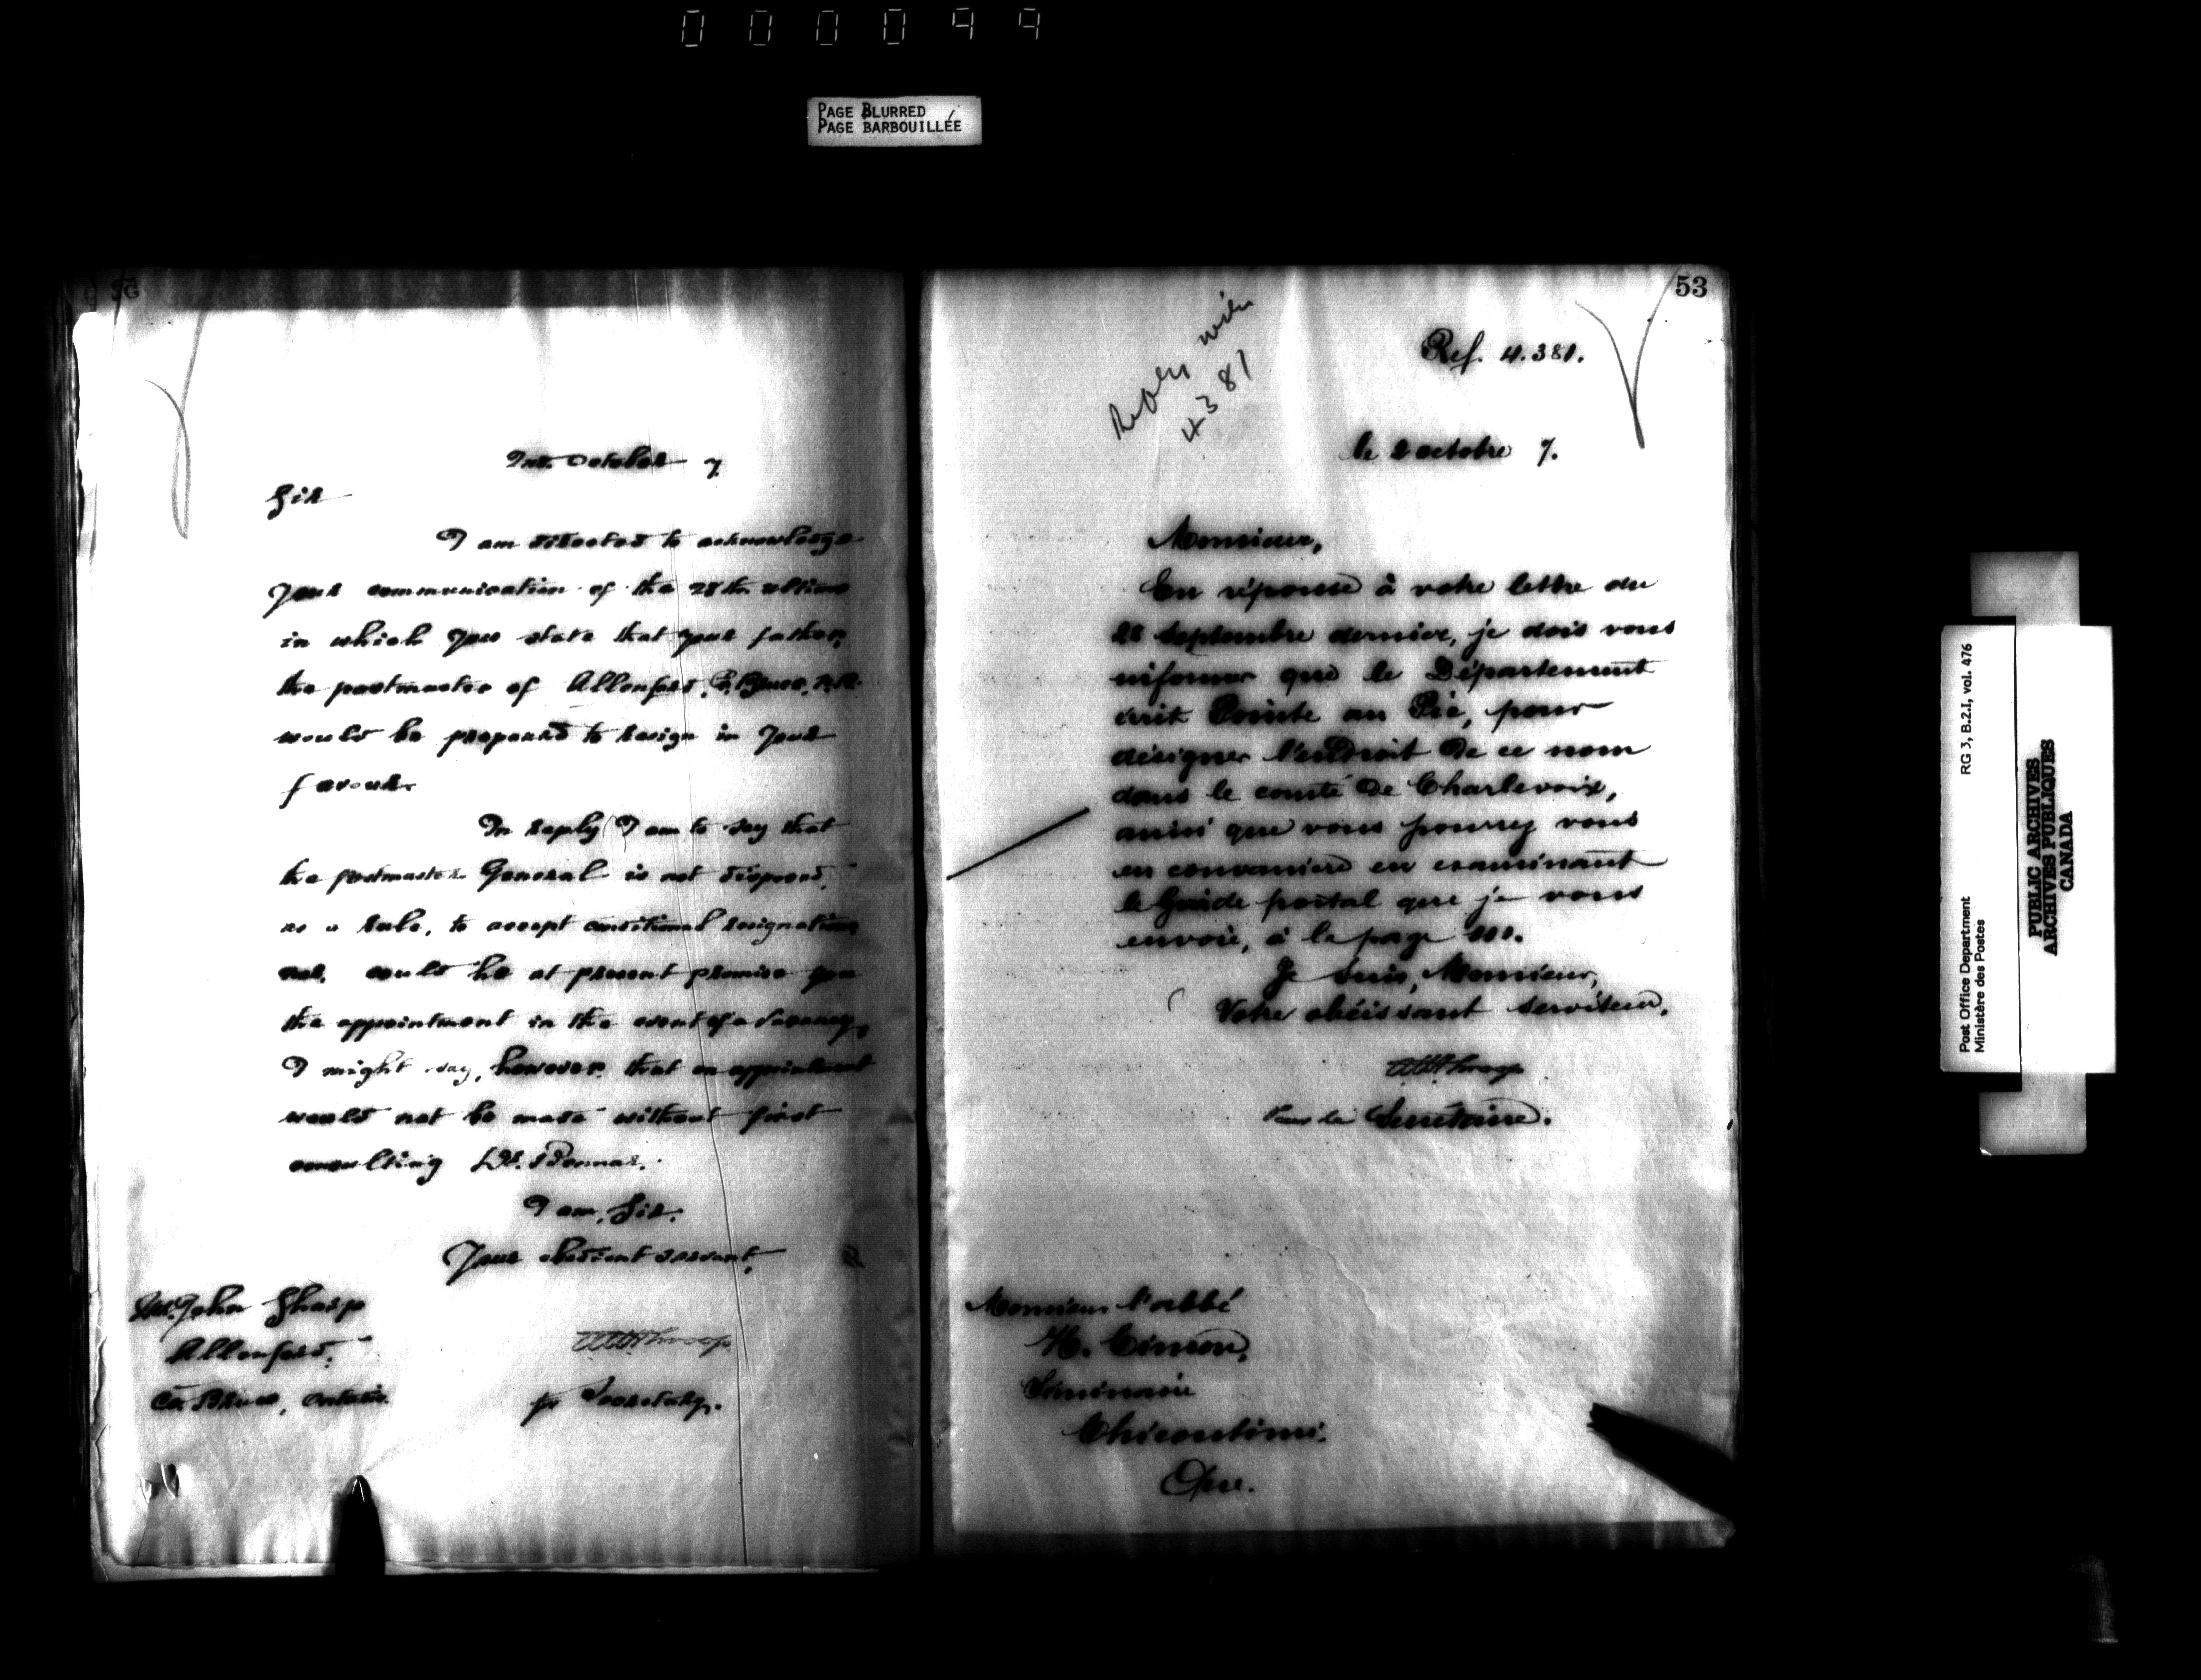 000099
PAGE BLURRED
PAGE BARBOUILLÉE
2nd. October 7.
Sir
I am directed to acknowledge
your communication of the 28th ultimo
in which you state that your father,
the postmaster of Allenford,
would be prepared to resign in your
favour.
In reply I am to say that
the postmaster General is not disposed,
as a rule, to accept conditional resignations
nor, could he at present promise you
the appointment in the event of a vacancy,
I might say, however, that an appointment
would not be made without first
consulting
I am, Sir,
Your obedient servant,
Mr. John Sharp
Allenford,
Co. Bruce, Ontario.
for Secretary.
53
Ref. 4.381.
4381
le 2 octobre 7.
Monsieur,
En réponse à votre lettre du
28 septembre dernier, je dois vous
informer que le Département
écrit Pointe au Pic, pour
désigner l'endroit de ce nom
dans le comté de Charlevoix,
ainsi que vous pourrez vous
en convaincre en examinant
le Guide postal que je vous
envoie, à la page
Je suis, Monsieur,
Votre obéissant serviteur.
Pour le Secrétaire.
Monsieur l'abbé
H. Cimon,
Séminaire
Chicoutimi.
Que.
Post Office Department
Ministère des Postes
RG 3, B.2.I, vol. 476
PUBLIC ARCHIVES
ARCHIVES PUBLIQUES
CANADA